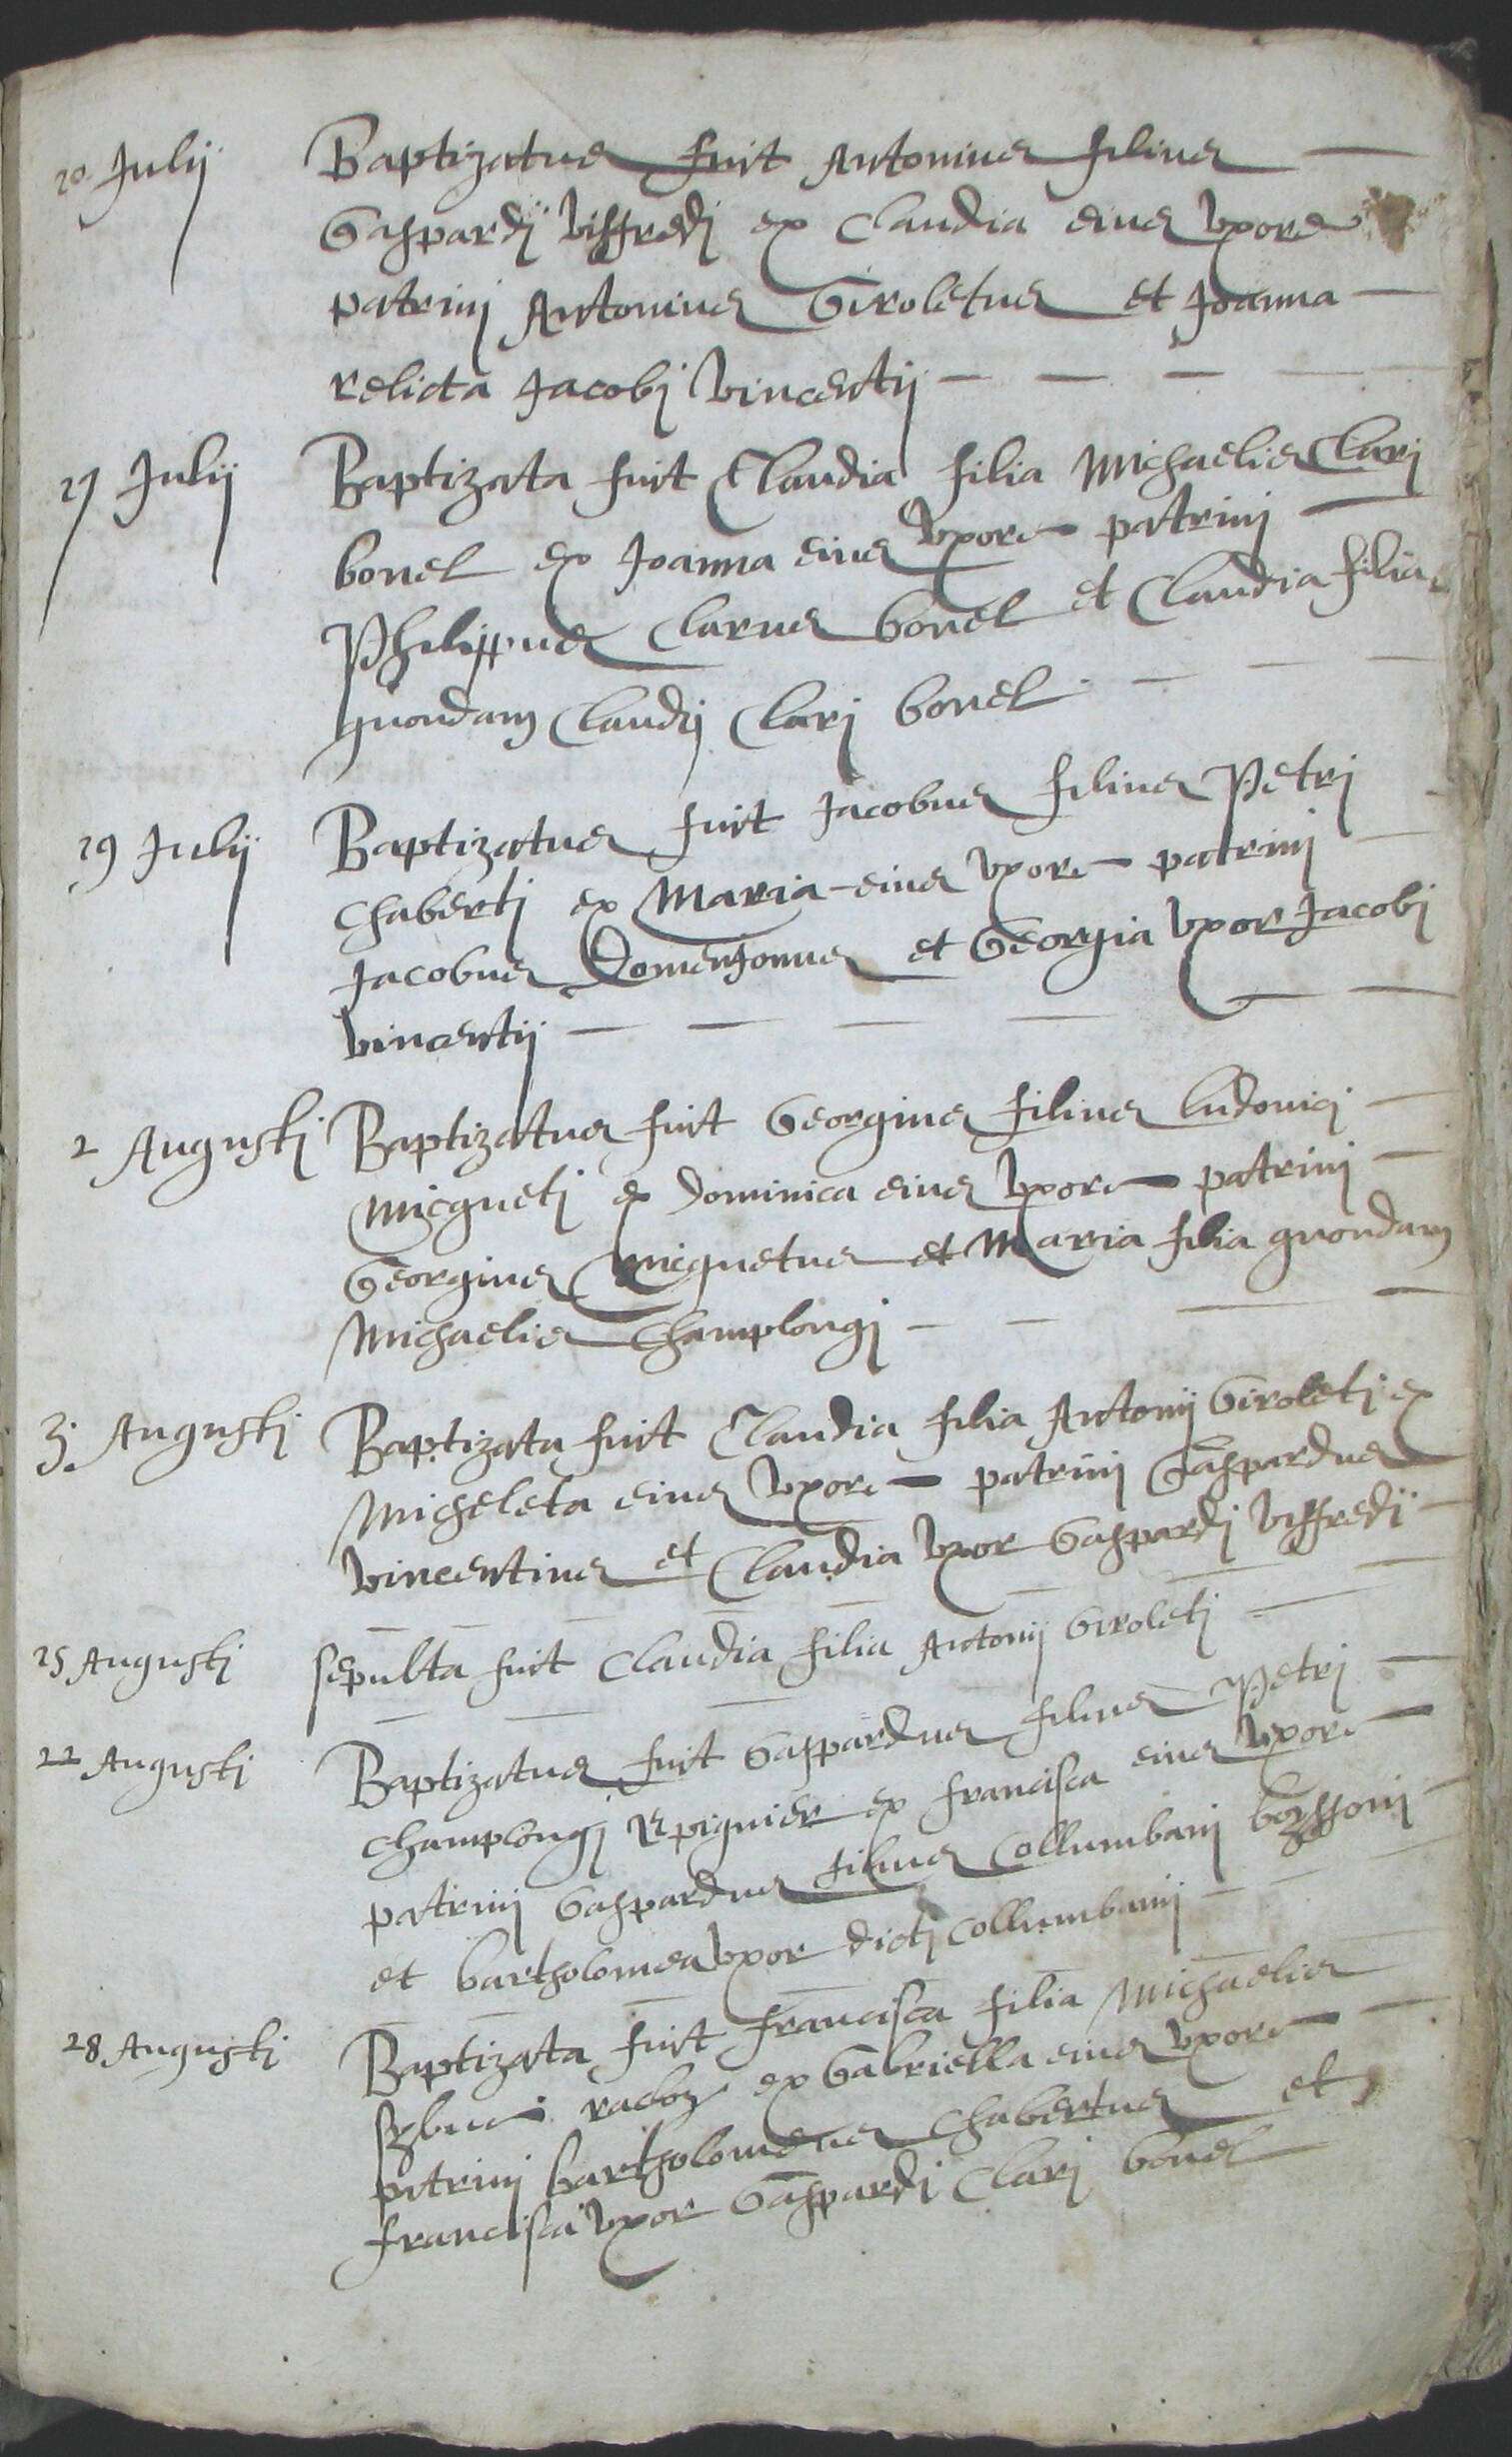 20 Julij Baptizatus fuit Antonius filius
Gaspardj Viffredj ex Claudia eius Vxore
patrinj Antonius Giroletus et Joanna
relicta Jacobj Vincentij
27 Julij Baptizata fuit Claudia filia Michaelis Clarj
bonel ex Joanna eius Vxore patrinj
Philippus Clarus bonel et Claudia filia
quondam Claudij Clarj bonel
29 Julij Baptizatus fuit Jacobus filius Petrj
Chabertj ex Maria eius Vxore patrinj
Jacobus Domenjonus et Georgia Vxor Jacobj
Vincentij
2 Augustj Baptizatus fuit Georgius filius Ludovicj
Micquetj ex Dominica eius Vxore patrinj
Georgius Micquetus et Maria filia quondam
Michaelis Champlongj
3 Augustj Baptizata fuit Claudia filia Antonij Giroletj ex
Micheleta eius Vxore patrinj Gaspardus
Vincentius et Claudia Vxor Gaspardj Viffredj
15 Augustj sepulta fuit Claudia filia Antonij Giroletj
22 Augustj Baptizatus fuit Gaspardus filius Petrj
Champlongj Repignier ex francisca eius Vxore
patrinj Gaspardus filius Collumbanj
et bartholomea Vxor dictj Collumbanj
28 Augustj Baptizata fuit francisca filia Michaelis
ex Gabriella eius Vxore
patrinj bartholomeus Chabertus et
francisca Vxor Gaspardj Clarj bonel